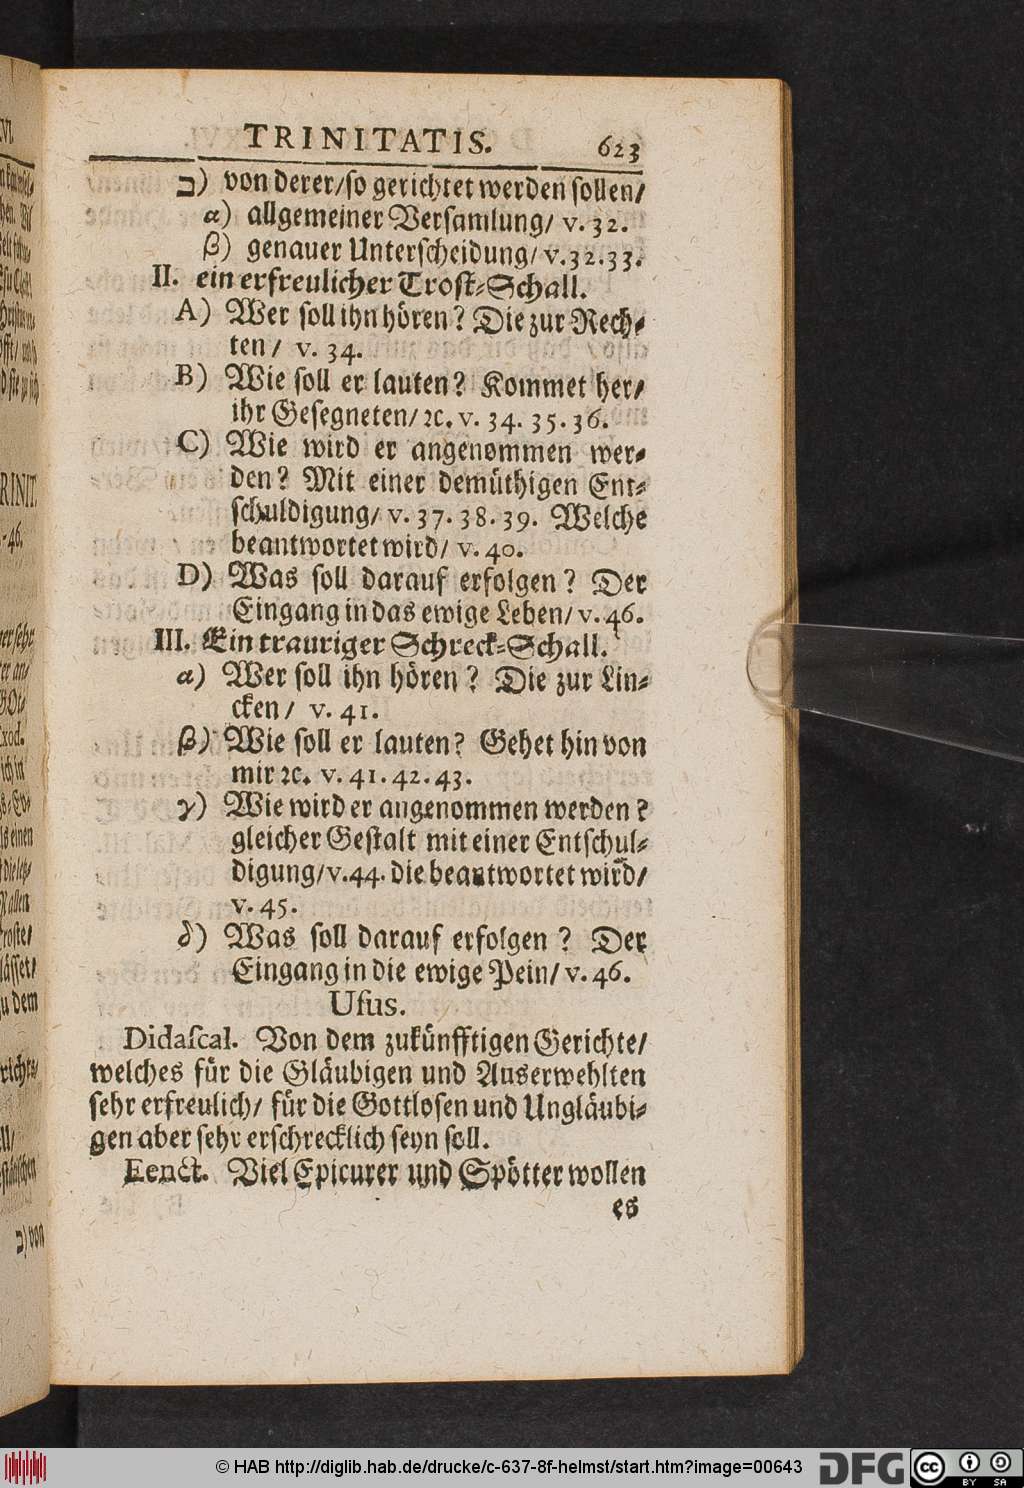 TRINITATIS. 623
ב) von derer/so gerichtet werden sollen/
α) allgemeiner Versamlung/ v. 32.
β) genauer Unterscheidung/ v.32.33.
II. ein erfreulicher Trost-Schall.
A) Wer soll ihn hören? Die zur Rech-
ten/ v. 34.
B) Wie soll er lauten? Kommet her/
ihr Gesegneten/ ꝛc. v. 34. 35. 36.
C) Wie wird er angenommen wer-
den? Mit einer demüthigen Ent-
schuldigung/ v. 37. 38. 39. Welche
beantwortet wird/ v. 40.
D) Was soll darauf erfolgen? Der
Eingang in das ewige Leben/ v. 46.
III. Ein trauriger Schreck-Schall.
α) Wer soll ihn hören? Die zur Lin-
cken/ v. 41.
β) Wie soll er lauten? Gehet hin von
mir ꝛc. v. 41. 42. 43.
γ) Wie wird er angenommen werden?
gleicher Gestalt mit einer Entschul-
digung/v.44. die beantwortet wird/
v. 45.
δ) Was soll darauf erfolgen? Der
Eingang in die ewige Pein/ v. 46.
Uſus.
Didaſcal. Von dem zukünfftigen Gerichte/
welches für die Gläubigen und Auserwehlten
sehr erfreulich/ für die Gottlosen und Ungläubi-
gen aber sehr erschrecklich seyn soll.
Eenct. Viel Epicurer und Spötter wollen
es
ב) von
© HAB http://diglib.hab.de/drucke/c-637-8f-helmst/start.htm?image=00643
DFG
cc BY SA